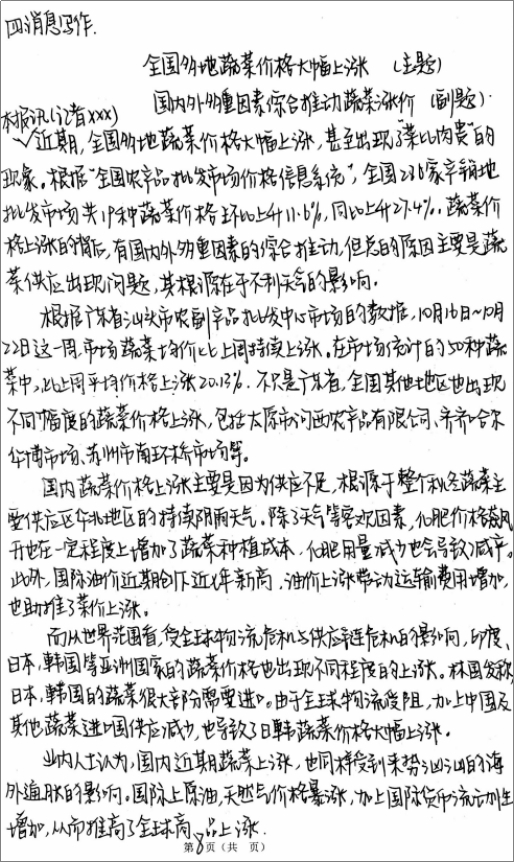 四.消息写作.
全国多地蔬菜价格大幅上涨 (主题)
国内外多重因素综合推动蔬菜涨价 (副题).
本报讯(记者xxx)
近期,全国多地蔬菜价格大幅上涨,甚至出现"菜比肉贵"的
现象。根据"全国农产品批发市场价格信息系统",全国236家产销地
批发市场共19种蔬菜价格环比上升11.6%,同比上升27.4%。蔬菜价
格上涨的背后,有国内外多重因素的综合推动,但总的原因主要是蔬
菜供应出现问题,其根源在于不利天气的影响.
根据广东省汕头市农副产品批发中心市场的数据,10月16日~10月
22日这一周,市场蔬菜均价比上周持续上涨。在市场统计的50种蔬
菜中,比上周平均价格上涨20.13%.不只是广东省,全国其他地区也出现
不同幅度的蔬菜价格上涨,包括太原市河西农产品有限公司、齐齐哈尔
华博市场、苏州市南环桥市场等。
国内蔬菜价格上涨主要是因为供应不足,根源于整个秋冬蔬菜主
要供应区华北地区的持续阴雨天气。除了天气等客观因素,化肥价格飙
升也在一定程度上增加了蔬菜种植成本,化肥用量减少也会导致减产。
此外,国际油价近期创下近年新高,油价上涨带动运输费用增加,
也助推了菜价上涨。
而从世界范围看,受全球物流危机与供应链危机的影响,印度、
日本,韩国等亚洲国家的蔬菜价格也出现不同程度的上涨。林国发称,
日本,韩国的蔬菜很大部分需要进口。由于全球物流受阻,加上中国及
其他蔬菜进口国供应减少,也导致了日韩蔬菜价格大幅上涨.
业内人士认为,国内近期蔬菜上涨,也同样受到来势汹汹的海
外通胀的影响。国际上原油,天然气价格暴涨,加上国际货币流动性
增加,从而推高了全球商品上涨.
第8页(共 页)